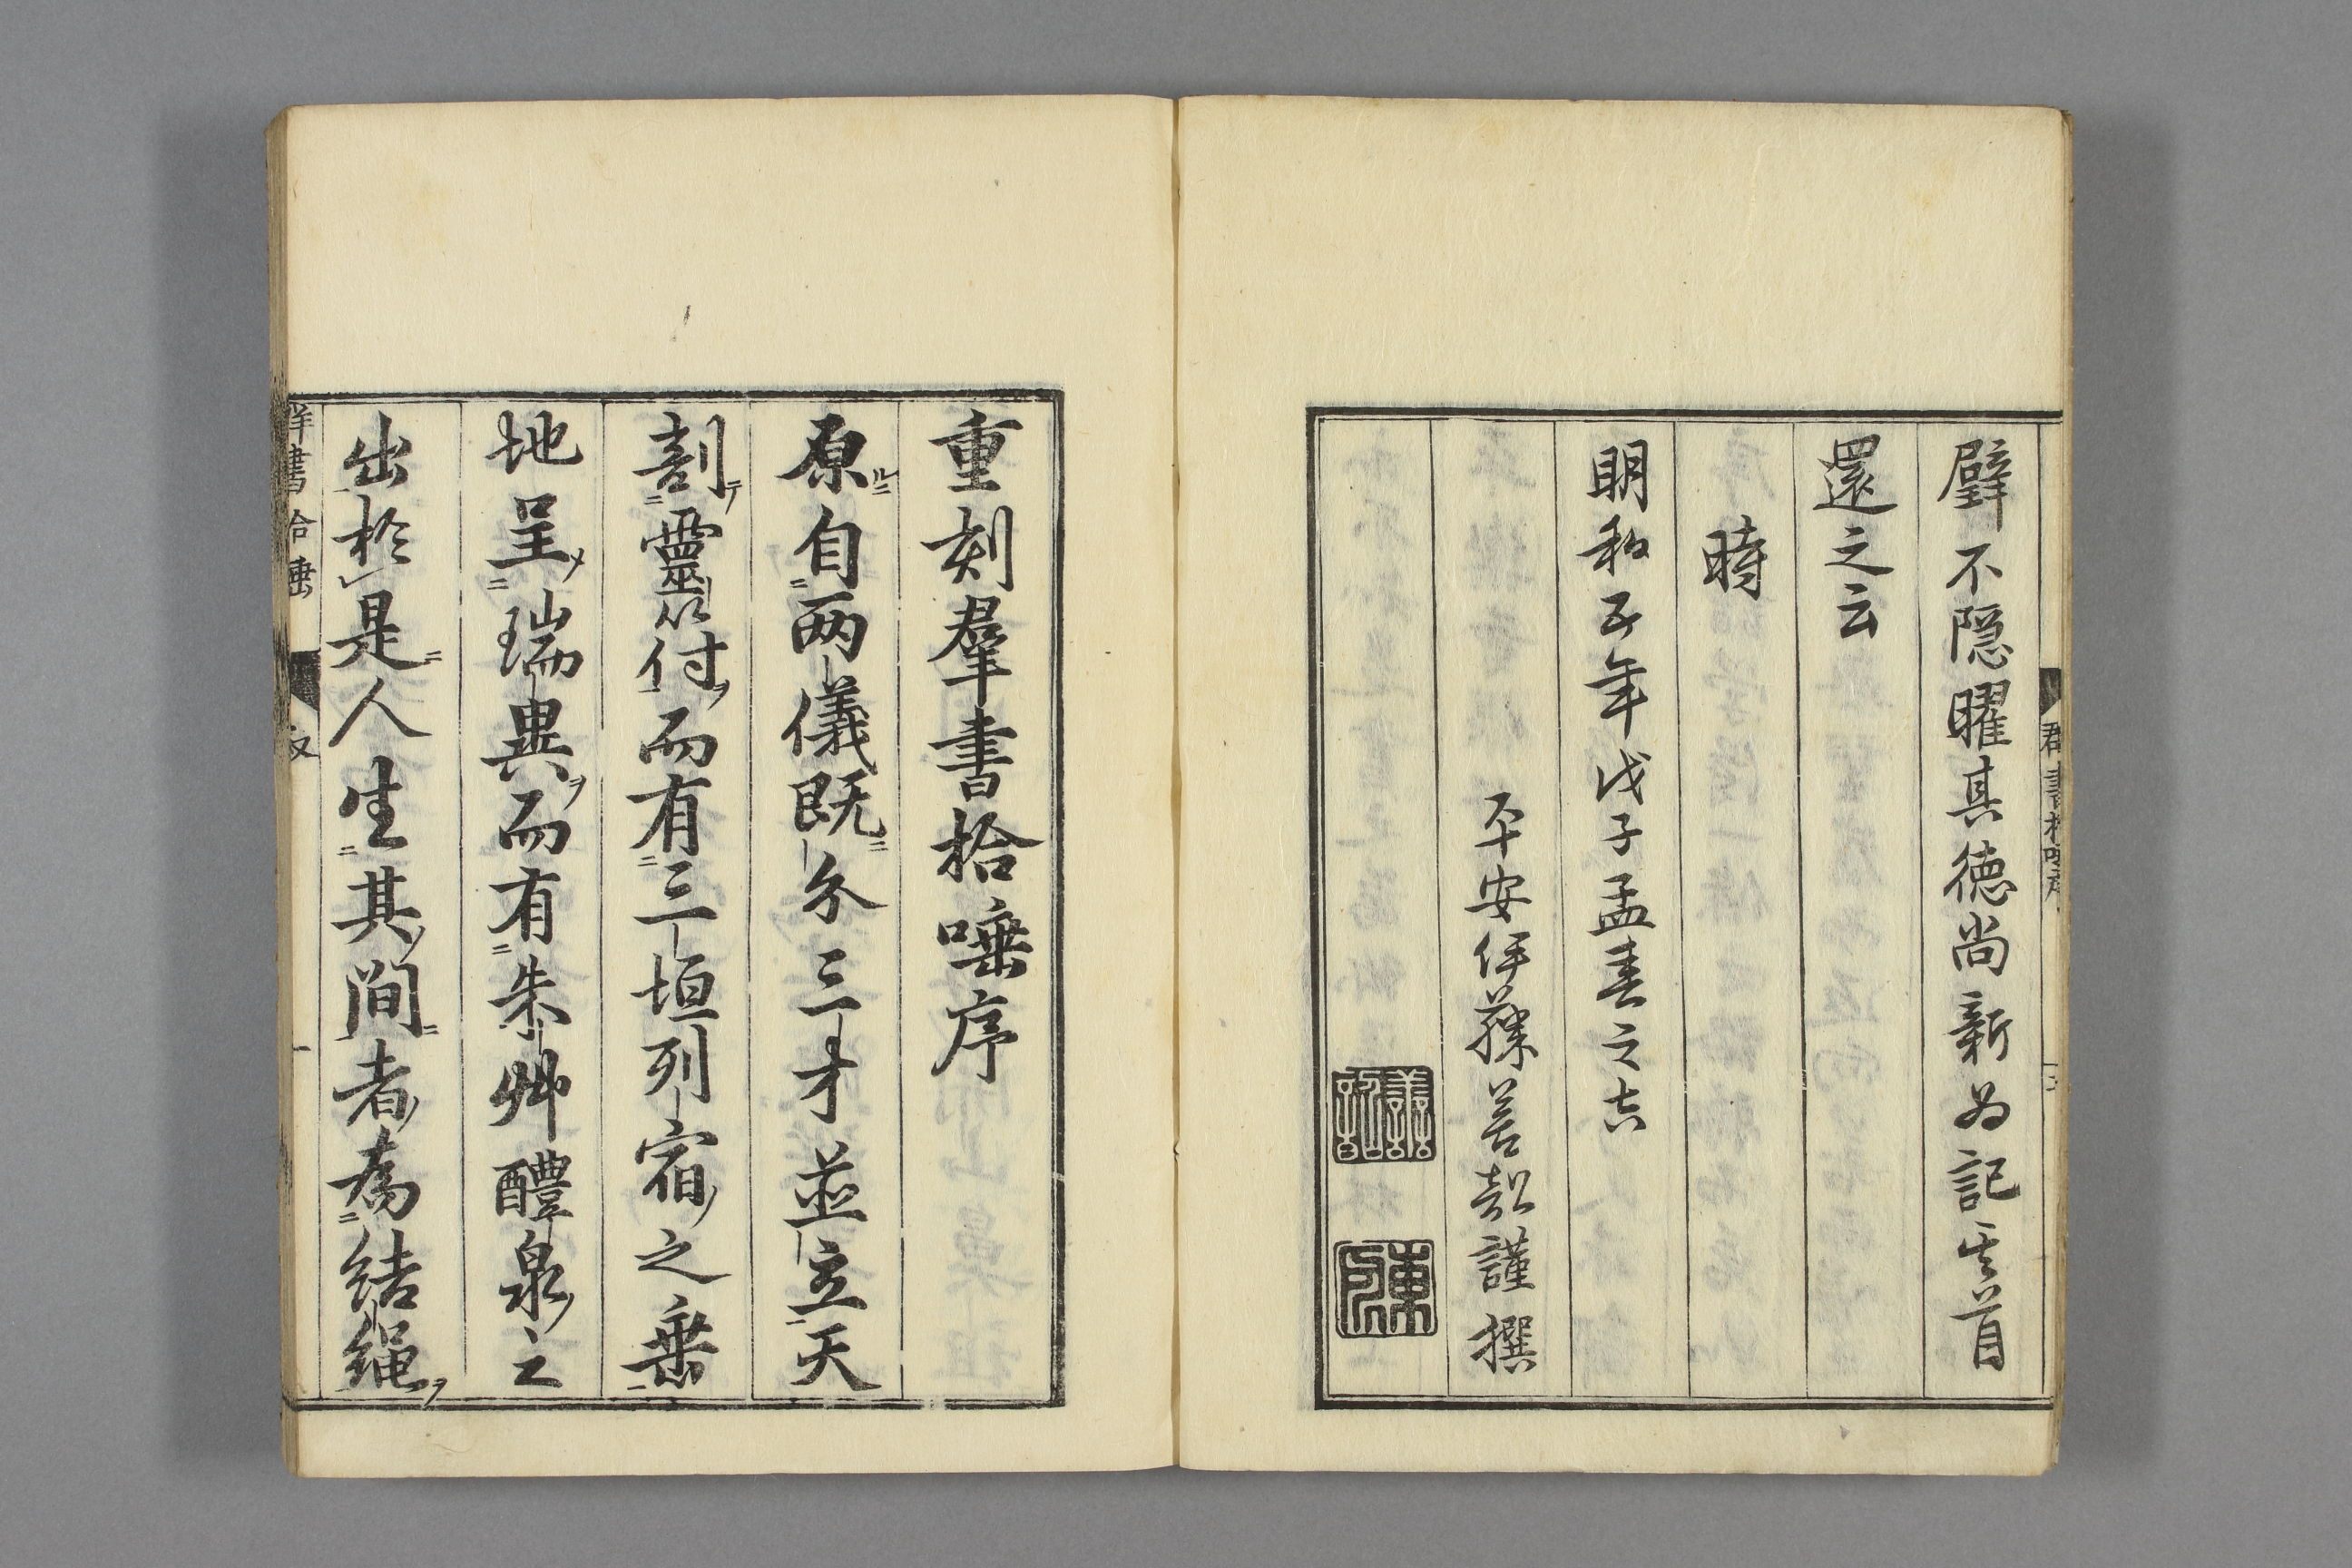 群書拾唾序
璧不隠曜其徳尚新为記其首
還之云
時
明和五年戊子孟春之吉
平安伊藤善韶謹撰
善韶
東所
重刻羣書拾唾序
原自两儀既分三才並立天
剖靈符而有三垣列宿之垂
地呈瑞異而有朱艸醴泉之
出於是人生其間者為結繩
群書拾唾 叙 一